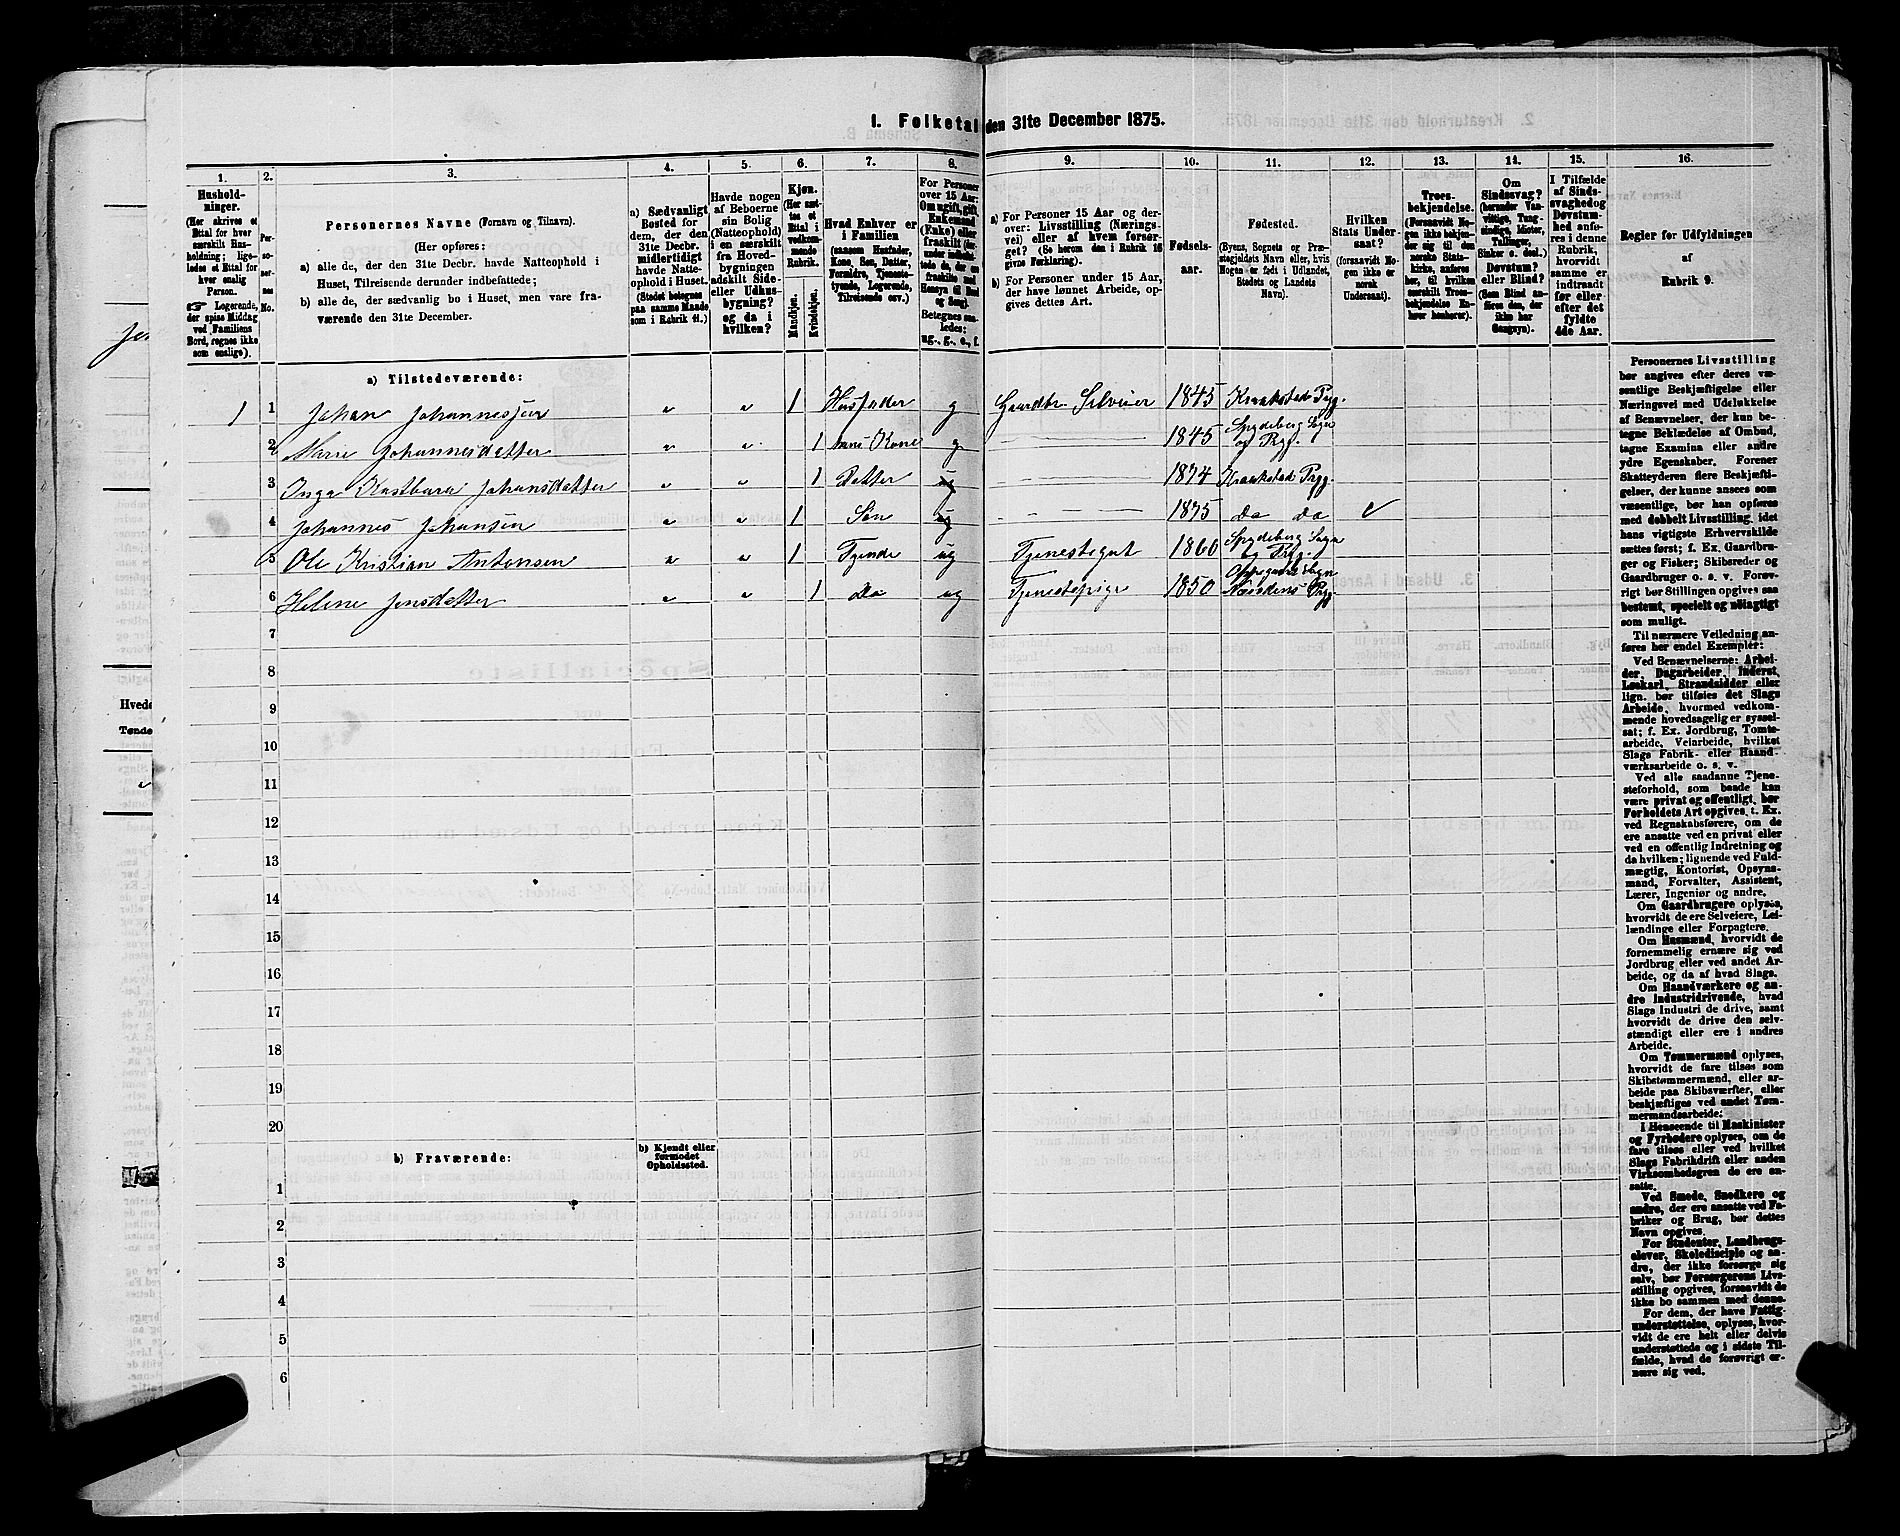 I. Folketal den 31te December 1875.
1. 2. 3. 4. 5. 6. 7. 8. 9. 10. 11. 12. 13. 14. 15. 16.
Personernes Navne (Fornavn og Tilnavn).
(Her opføres:
a) alle de, der den 31te Decbr. havde Natteophold i
Huset, Tilreisende derunder indbefattede;
b) alle de, der sædvanlig bo i Huset, men vare fra-
værende den 31te December.
a) Sædvanligt
Bosted for
dem, der den
31te Decbr.
midlertidigt
havde Natte-
ophold i Huset.
(Stedet betegnes
paa samme Maade
som i Rubrik 11.)
Havde nogen
af Beboerne
sin Bolig
(Natteophold)
i en særskilt
fra Hoved-
bygningen
adskilt Side-
eller Udhus-
bygning?
og da i
hvilken?
Kjøn.
Mandkjøn.
Kvindekjøn.
Hvad Enhver er
i Familien
a) For Personer 15 Aar og der-
over: Livsstilling (Nærings-
vei) eller af hvem forsør-
get? (Se herom den i Rubrik 16
givne Forklaring).
b) For Personer under 15 Aar,
der have lønnet Arbeide, op-
gives dettes Art.
Fødsels-
aar.
Fødested.
(Byens, Sognets og Præ-
stegjeldets Navn eller, hvis
Nogen er født i Udlandet,
Stedets og Landets
Navn).
Hvilken
Stats Under-
saat?
(forsaavidt No-
gen ikke er
norsk
Undersaat).
Troes-
bekjendelse.
I Tilfælde
af Sinds-
svaghed og
Døvstum-
hed anfø-
res i denne
Rubrik,
hvorvidt
samme er
indtraadt
før eller
efter det
fyldte
4de Aar.
Regler for Udfyldningen
af
Rubrik 9.
a) Tilstedeværende:
1 1 Johan Johannessen " " 1 Husfader g Gaardbr. Selveier 1845 Kraakstad Pgj.
2 Marie Johannesdatter " " 1 hans Kone g 1845 Spydeberg Sogn og Pgj.
3 Inga Kastbara Johansdatter " " 1 Datter ug 1874 Kraakstad Pgj.
4 Johannes Johansen " " 1 Søn ug 1875 Do Do
5 Ole Kristian Antonsen " " 1 Tjende ug Tjenestegut 1860 Spydeberg Sogn og Pgj.
6 Helene Jensdatter " " 1 Do ug Tjenestepige 1850 Næsoddens Pgj.
7
8
9
10
11
12
13
14
15
16
17
18
19
20
b) Fraværende: b) Kjendt eller
formodet
Opholdssted.
1
2
3
4
5
6
Personernes Livsstilling
bør angives efter deres væ-
sentlige Beskjæftigelse eller
Næringsvei med Udelukkelse
af Benævnelser, der kun be-
tegne Beklædelse af Ombud,
tagne Examina eller andre
ydre Egenskaber. Forener
Skatteyderen flere Beskjæfti-
gelser, der kunne ansees som
væsentlige, bør han opføres
med dobbelt Livsstilling, idet
hans vigtigste Erhvervskilde
sættes først; f. Ex. Gaardbru-
ger og Fisker; Skibsreder og
Gaardbruger o. s. v. Forøv-
rigt bør Stillingen opgives saa
bestemt, specielt og nøiagtigt
som muligt.
Til nærmere Veiledning an-
føres her endel Exempler:
Ved Benævnelserne: Arbei-
der, Dagarbeider, Inderst,
Løskarl, Strandsidder eller
lign. bør tilføies det Slags
Arbeide, hvormed vedkom-
mende hovedsagelig er syssel-
sat; f. Ex. Jordbrug, Tomte-
arbeide, Veiarbeide, hvilket
Slags Fabrik- eller Haand-
værksarbeide o. s. v.
Ved alle saadanne Tjene-
steforhold, som baade kan
være privat og offentligt, bør
Forholdets Art opgives, t. Ex.
ved Regnskabsførere, om de
ere ansatte ved en privat eller
ved en offentlig Indretning og
da hvilken; lignende ved Fuld-
mægtig, Kontorist, Opsyns-
mand, Forvalter, Assistent,
Lærer, Ingeniør og andre.
Om Gaardbrugere oplyses,
hvorvidt de ere Selveiere, Lei-
lændinge eller Forpagtere.
Om Husmænd, hvorvidt de
fornemmelig ernære sig ved
Jordbrug eller ved andet Ar-
beide, og da af hvad Slags.
Om Haandværkere og an-
dre Industridrivende, hvad
Slags Industri de drive, samt
hvorvidt de drive den selv-
stændigt eller ere i andres
Arbeide.
Om Tømmermænd oplyses,
hvorvidt de fare tilsøs som
Skibstømmermænd, eller ar-
beide paa Skibsværfter, eller
beskjæftiges ved andet Tøm-
mermandsarbeide.
I Henseende til Maskinister
og Fyrbødere oplyses, om de
fare tilsøs eller ved hvilket
Slags Fabrikdrift eller anden
Virksomhedsgren de ere an-
satte.
Ved Smede, Snedkere og
andre, der ere ansatte ved Fa-
briker og Brug, bør dettes
Navn opgives.
For Studenter, Landbrugs-
elever, Skoledisciple og an-
dre, der ikke forsørge sig
selv, bør Forsørgerens Livs-
stilling opgives, forsaavidt de
ikke bo sammen med denne.
For dem, der have Fattig-
understøttelse, oplyses, hvor-
vidt de ere helt eller delvis
understøttede og i sidste Til-
fælde, hvad de forøvrigt er-
nære sig ved.